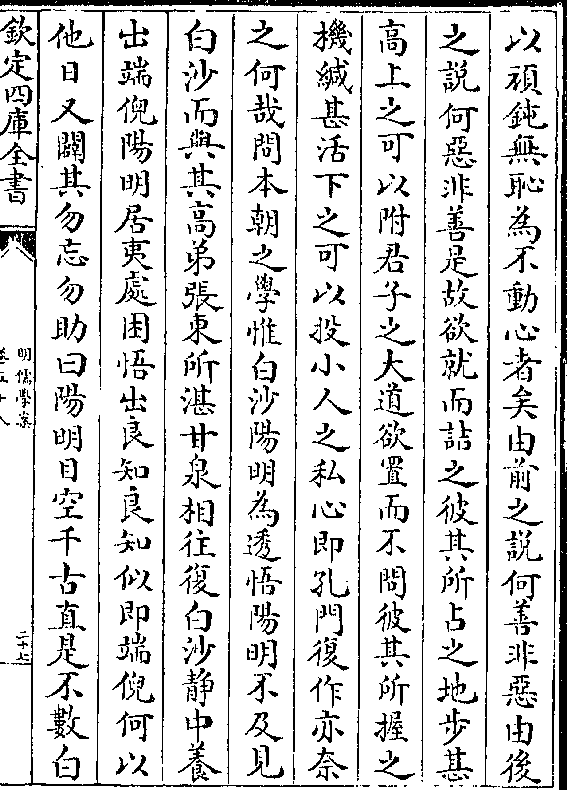 以頑鈍無恥為不動心者矣由前之說何善非惡由後
之說何惡非善是故欲就而詰之彼其所占之地步甚
高上之可以附君子之大道欲置而不問彼其所握之
機緘甚活下之可以投小人之私心即孔門復作亦奈
之何哉問本朝之學惟白沙陽明為透悟陽明不及見
白沙而與其高弟張東所湛甘泉相往復白沙静中養
出端倪陽明居夷處困悟出良知良知似即端倪何以
他日又闢其勿忘勿助曰陽明目空千古直是不數白
欽定四庫全書
明儒學案
卷五十八
二十七